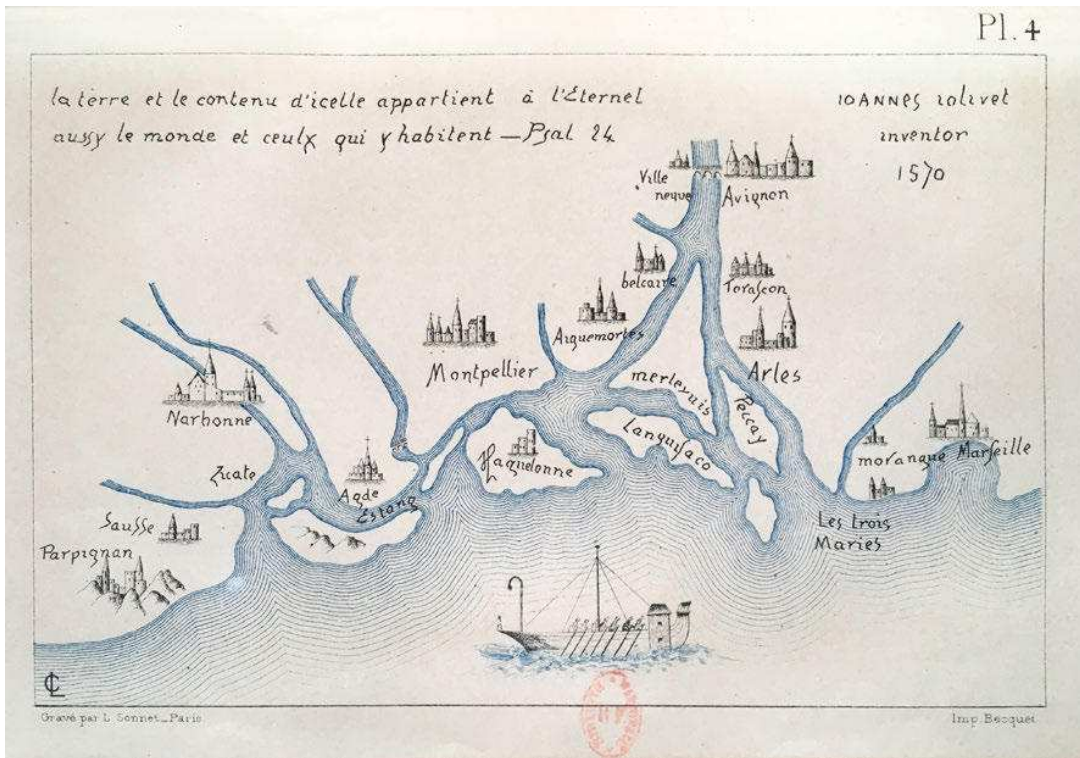 Pl. 4
la terre et le contenu d'icelle appartient à l'Éternel
aussy le monde et ceulx qui y habitent — Psal 24
IOANNES IOLIVET
inventor
1570
Ville
neque
Avignon
belcaire
Tarascon
Aiguemortes
Arles
Montpellier
merlevuis
Peccay
Languisaco
Narbonne
Zucate
Agde
Estang
Haguelonne
moranque
Marseille
Sausse
Parpignan
Les trois
Maries
CL
Gravé par L. Sonnet_Paris
Imp. Becquet